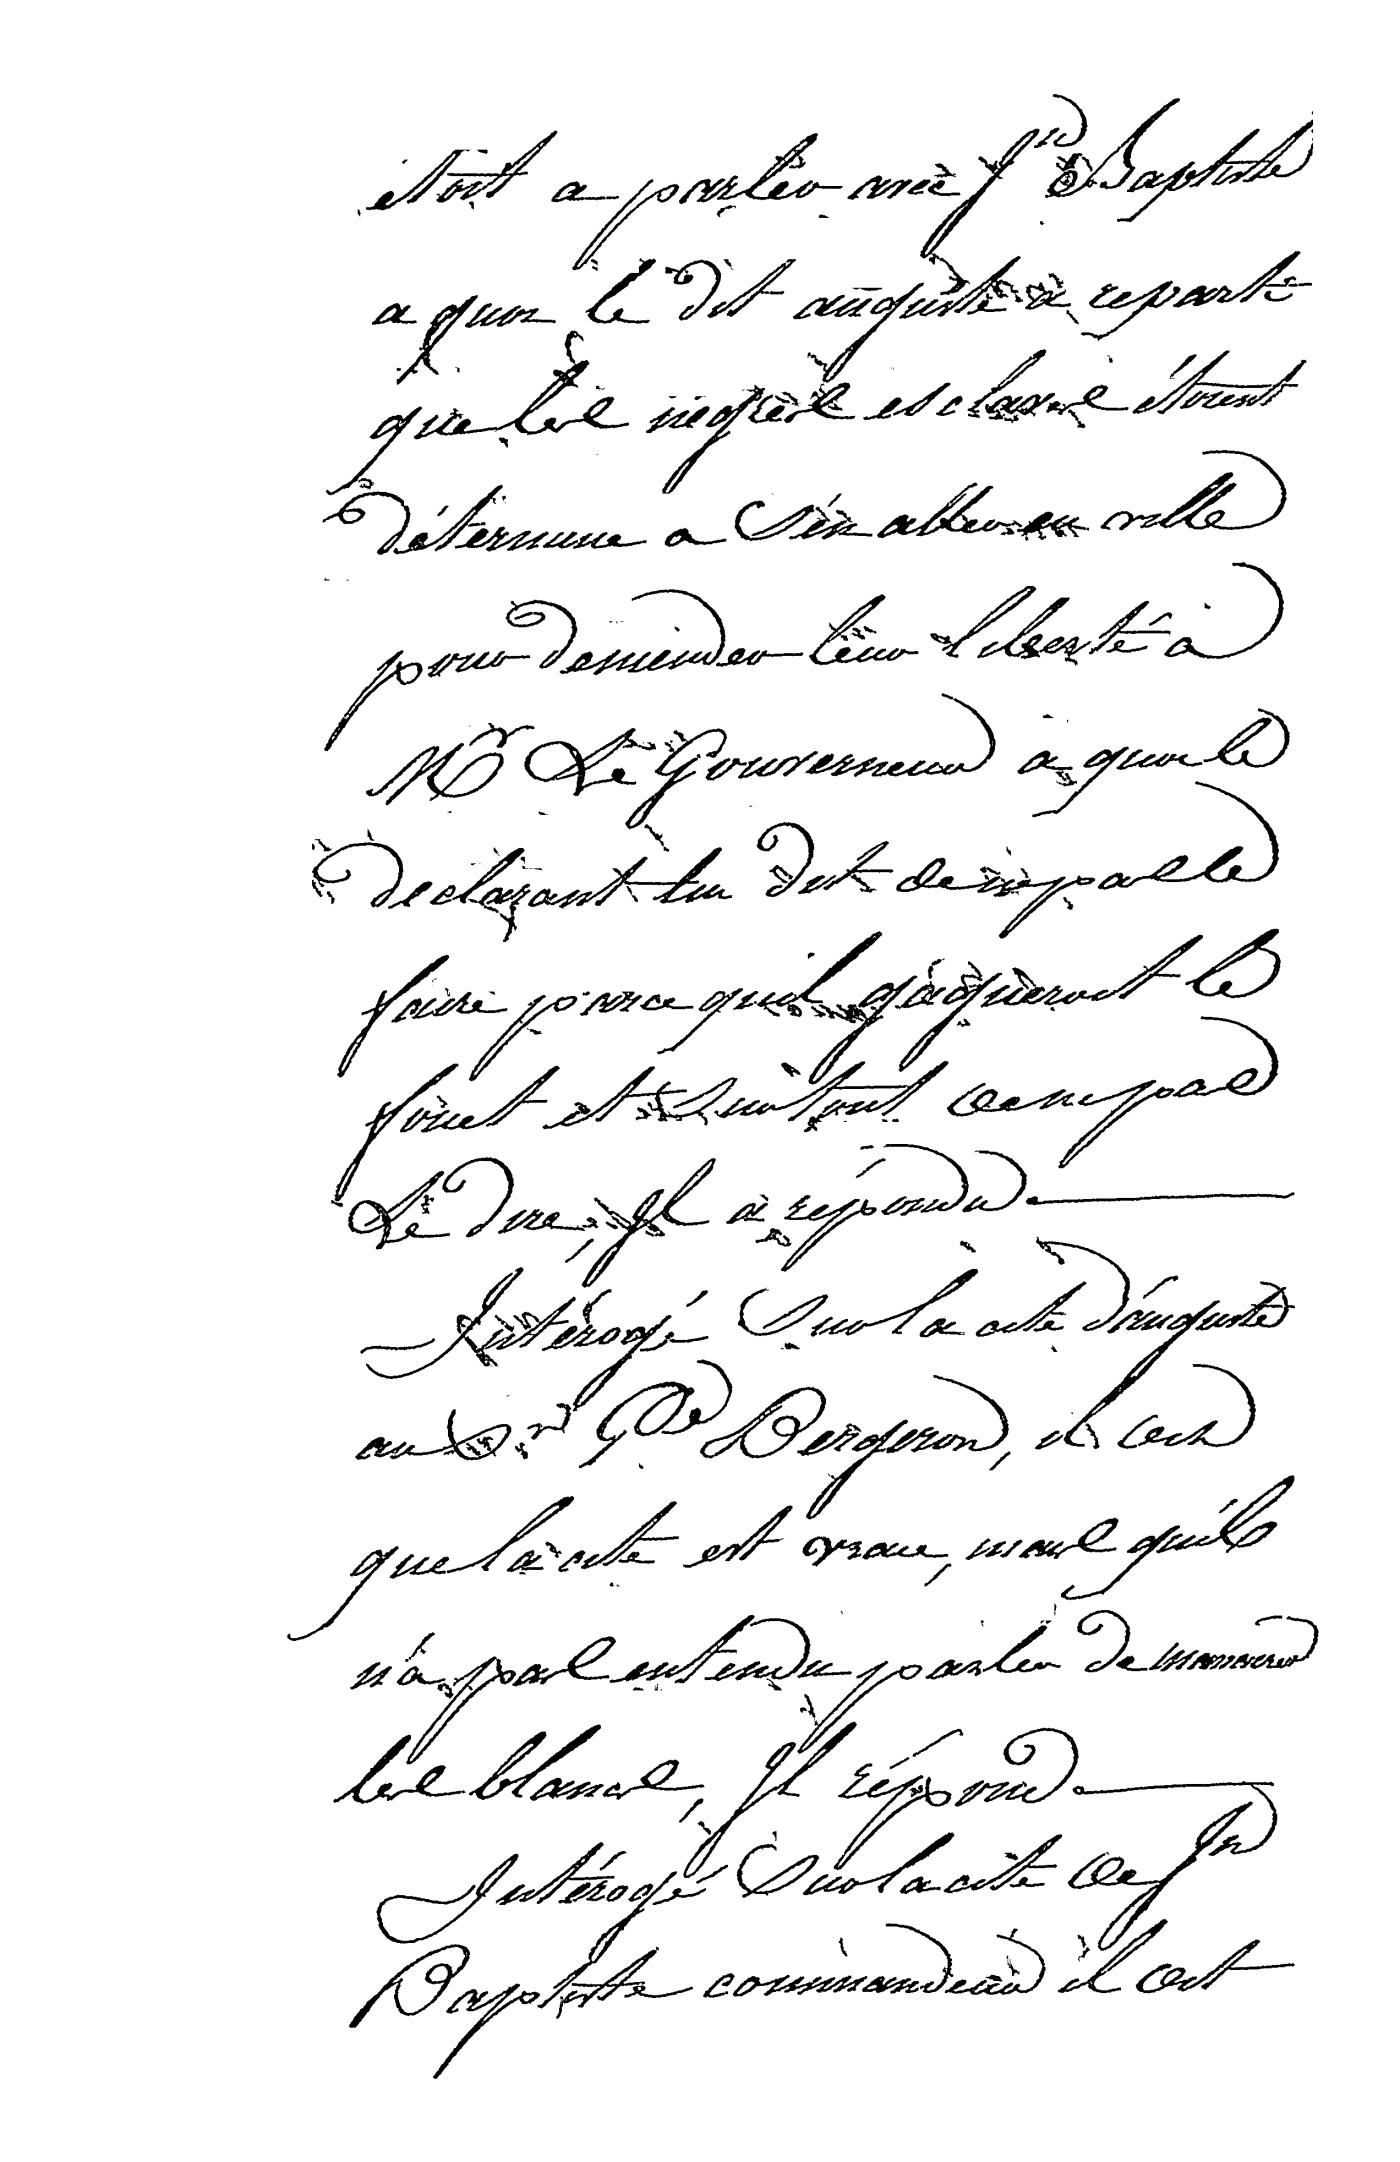 étoit a parler avec Jn Baptiste
a quoi le dit auguste a reparti
que les negres esclaves étoient
déterminé a s'én aller en ville
pour demender leur liberté à
Mr Le Gouverneur a quoi le
declarant lui dit de ne pas le
faire parce quil gágneroit le
fouet et surtout de ne pas
Le dire, Il a répondu
Intérogé sur la cite d'áuguste
au Sr Gde Bergeron, il dit
que la cite est vraie, mais qu'il
n'a pas entendu parler de massacrer
les blancs, Il répond
Intérogé sur la cite de Jn
Baptiste commandeur il dit